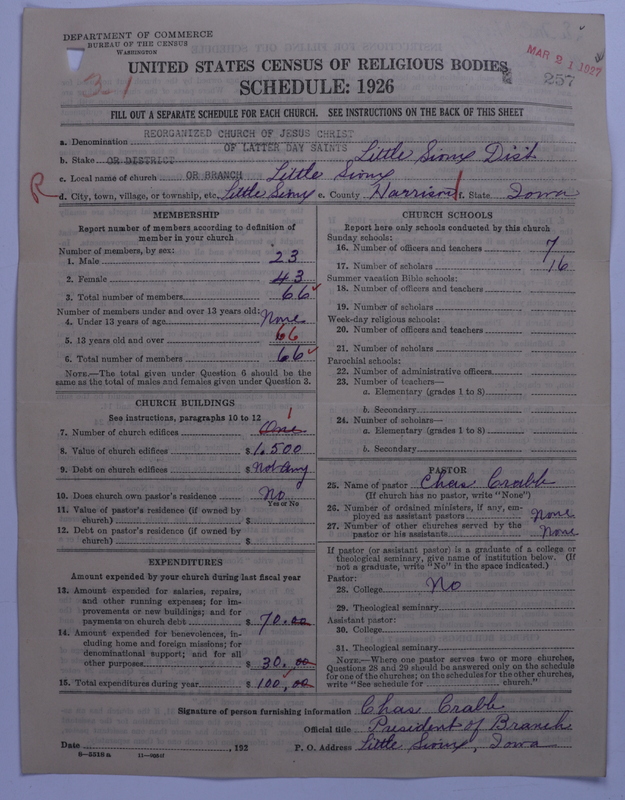 DEPARTMENT OF COMMERCE
BUREAU OF THE CENSUS
WASHINGTON
MAR 21 1927
257
3-1
UNITED STATES CENSUS OF RELIGIOUS BODIES
SCHEDULE: 1926
FILL OUT A SEPARATE SCHEDULE FOR EACH CHURCH. SEE INSTRUCTIONS ON THE BACK OF THIS SHEET
a. Denomination REORGANIZED CHURCH OF JESUS CHRIST
OF LATTER DAY SAINTS
b. Stake OR DISTRICT Little Sioux Dist
c. Local name of church OR BRANCH Little Sioux
R d. City, town, village, or township, etc. Little Sioux e. County Harrison f. State Iowa
MEMBERSHIP
Report number of members according to definition of
member in your church
Number of members, by sex:
1. Male 23
2. Female 43
3. Total number of members 66
Number of members under and over 13 years old:
4. Under 13 years of age None
5. 13 years old and over 66
6. Total number of members 66
NOTE.—The total given under Question 6 should be the
same as the total of males and females given under Question 3.
CHURCH BUILDINGS
See instructions, paragraphs 10 to 12
1
7. Number of church edifices One
8. Value of church edifices $ 1,500
9. Debt on church edifices $ Not Any
10. Does church own pastor's residence No
Yes or No
11. Value of pastor's residence (if owned by
church) $
12. Debt on pastor's residence (if owned by
church) $
EXPENDITURES
Amount expended by your church during last fiscal year
13. Amount expended for salaries, repairs,
and other running expenses; for im-
provements or new buildings; and for
payments on church debt $ 70.00
14. Amount expended for benevolences, in-
cluding home and foreign missions; for
denominational support; and for all
other purposes $ 30.00
15. Total expenditures during year $ 100.00
CHURCH SCHOOLS
Report here only schools conducted by this church
Sunday schools:
16. Number of officers and teachers 7
17. Number of scholars 16
Summer vacation Bible schools:
18. Number of officers and teachers
19. Number of scholars
Week-day religious schools:
20. Number of officers and teachers
21. Number of scholars
Parochial schools:
22. Number of administrative officers
23. Number of teachers—
a. Elementary (grades 1 to 8)
b. Secondary
24. Number of scholars—
a. Elementary (grades 1 to 8)
b. Secondary
PASTOR
25. Name of pastor Chas Crabb
(If church has no pastor, write "None")
26. Number of ordained ministers, if any, em-
ployed as assistant pastors None
27. Number of other churches served by the
pastor or his assistants None
If pastor (or assistant pastor) is a graduate of a college or
theological seminary, give name of institution below. (If
not a graduate, write "No" in the space indicated.)
Pastor:
28. College No
29. Theological seminary
Assistant pastor:
30. College
31. Theological seminary
NOTE.—Where one pastor serves two or more churches,
Questions 28 and 29 should be answered only on the schedule
for one of the churches; on the schedules for the other churches,
write "See schedule for church."
Signature of person furnishing information Chas Crabb
Official title President of Branch
Date , 192 P. O. Address Little Sioux, Iowa
8-5518a 11-9054f